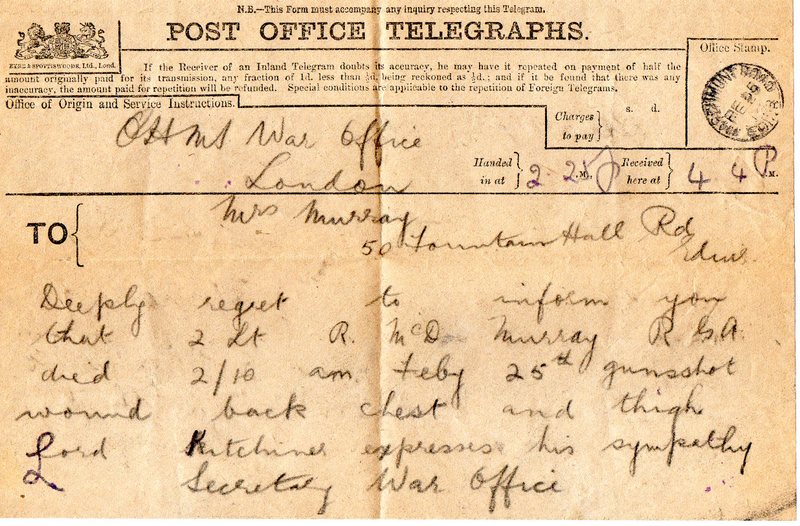 N.B.—This Form must accompany any inquiry respecting this Telegram.
POST OFFICE TELEGRAPHS.
If the Receiver of an Inland Telegram doubts its accuracy, he may have it repeated on payment of half the
amount originally paid for its transmission, any fraction of 1d. less than ½d. being reckoned as ½d.; and if it be found that there was any
inaccuracy, the amount paid for repetition will be refunded. Special conditions are applicable to the repetition of Foreign Telegrams.
Office Stamp.
Office of Origin and Service Instructions.
Charges to pay
s. d.
OHMS War Office
London
Handed in at 2 25 M.
Received here at 4 4 P M.
TO
Mrs Murray
50 Fountain Hall Rd
Edin.
Deeply regret to inform you
that 2 Lt R. McD. Murray R.G.A.
died 2/10 am Feby 25th gunsshot
wound back chest and thigh
Lord Kitchiner expresses his sympathy
Secretary War Office